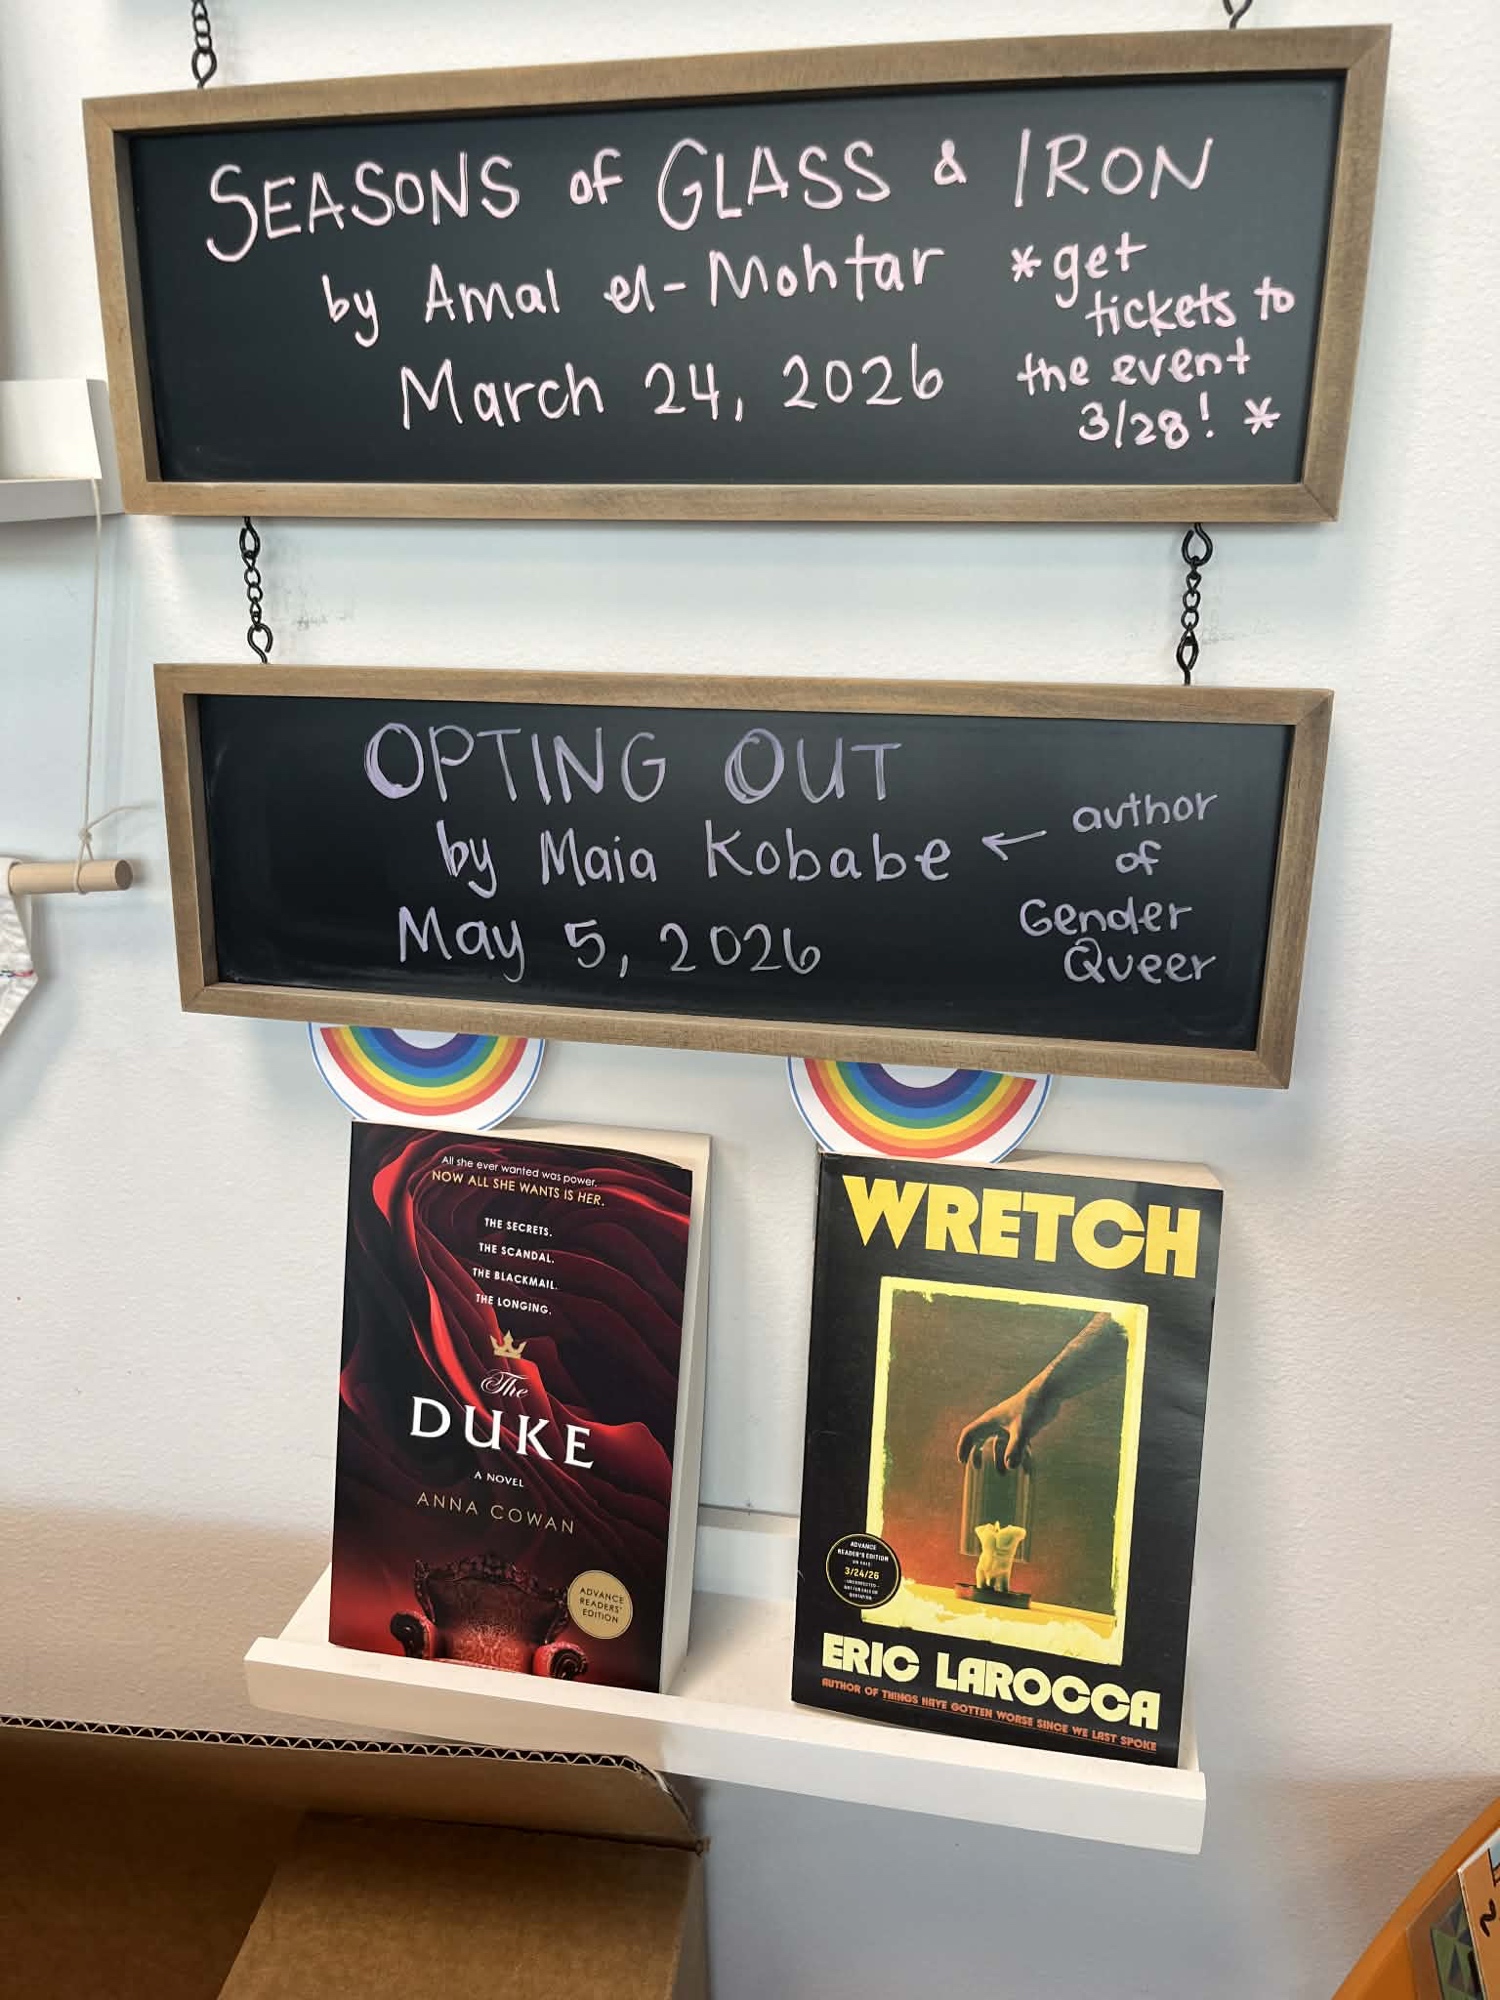 SEASONS of GLASS & IRON
by Amal el-Mohtar
March 24, 2026
*get
tickets to
the event
3/28! *
OPTING OUT
by Maia Kobabe ←
May 5, 2026
author
of
Gender
Queer
All she ever wanted was power.
NOW ALL SHE WANTS IS HER.
THE SECRETS.
THE SCANDAL.
THE BLACKMAIL.
THE LONGING.
The
DUKE
A NOVEL
ANNA COWAN
ADVANCE
READERS'
EDITION
WRETCH
ADVANCE
READER'S EDITION
ON SALE
3/24/26
ERIC LAROCCA
AUTHOR OF THINGS HAVE GOTTEN WORSE SINCE WE LAST SPOKE